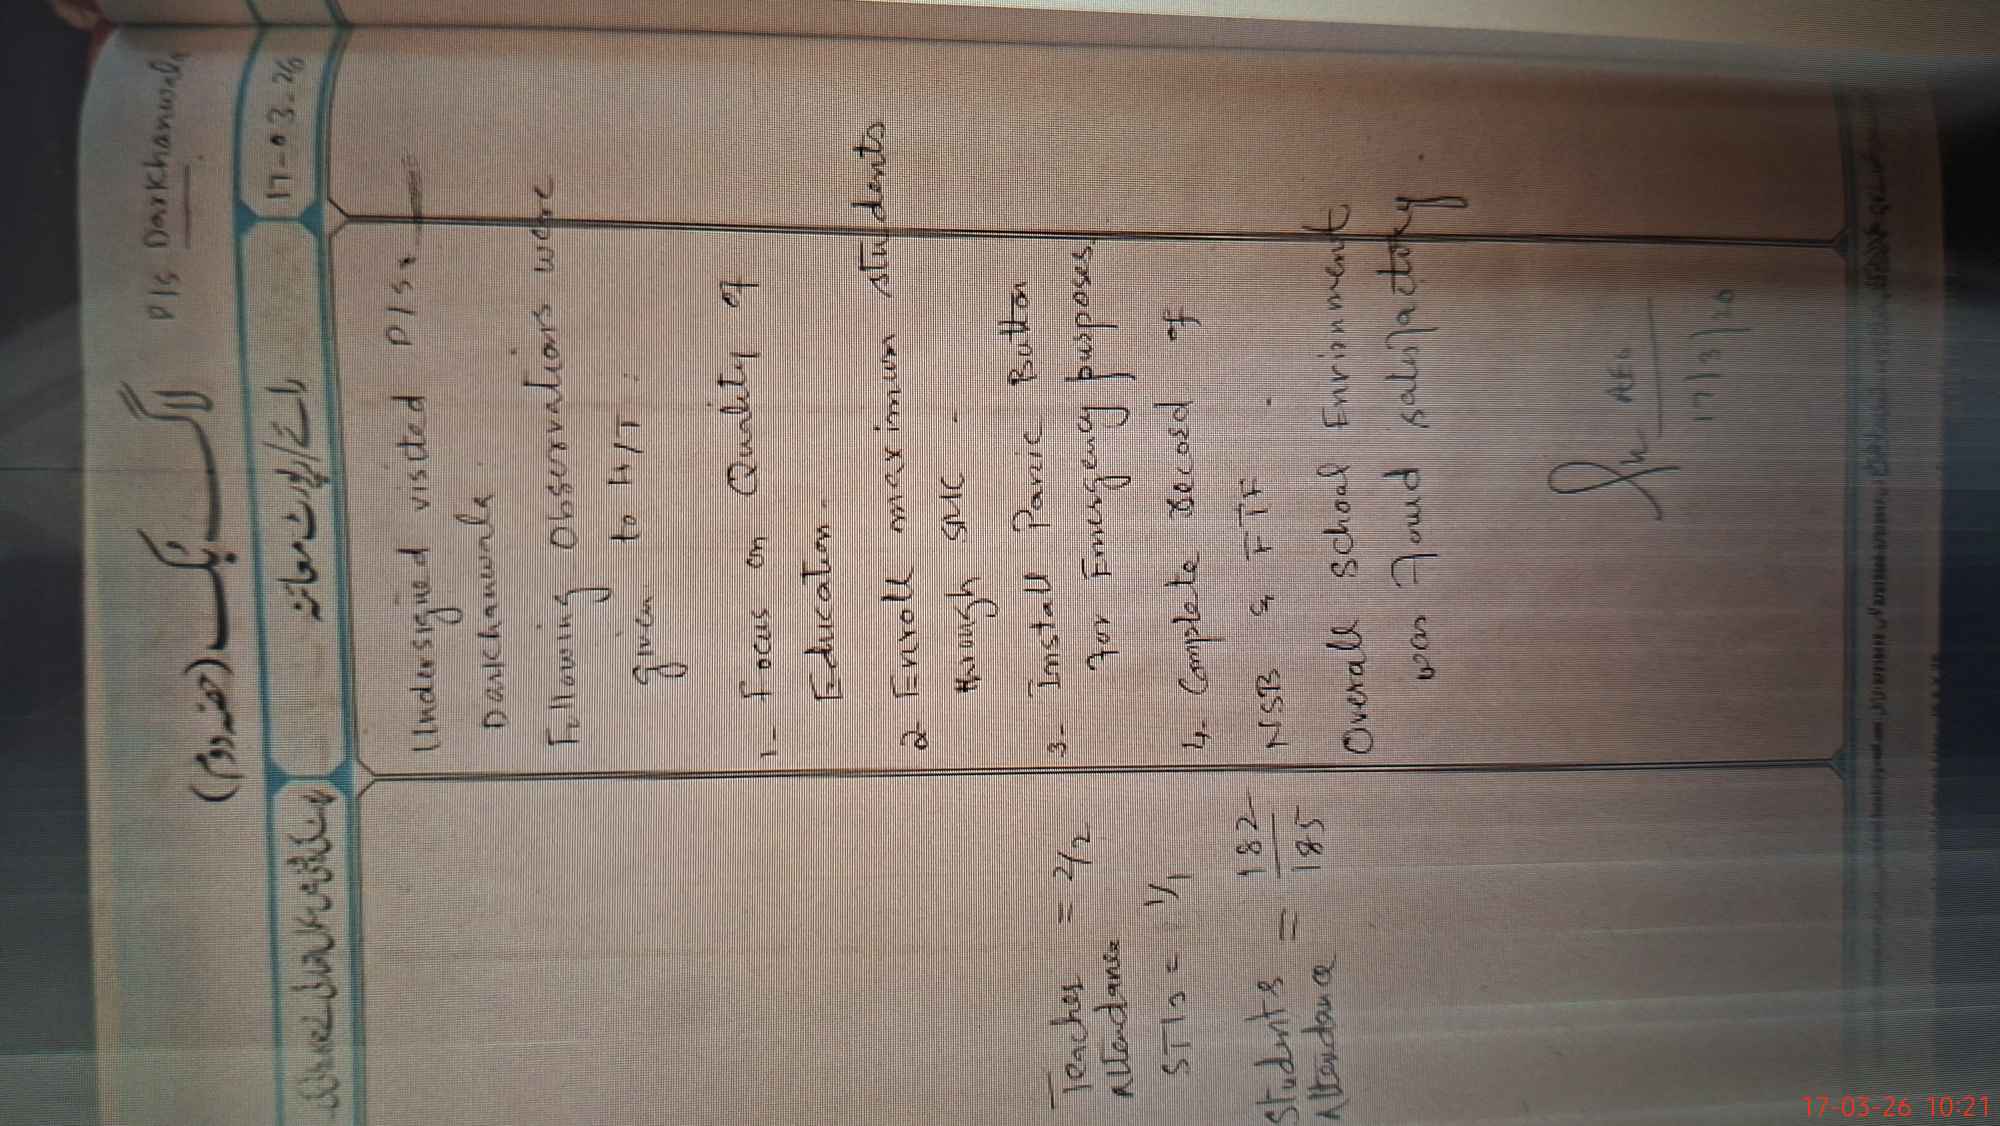 P/S Darkhanwala
لاگ بک (حصہ دوم)
17-03-26
رائے/رپورٹ معائنہ
Undersigned visited P/S
Darkhanwala.
Following Observations were
given to H/T :
1- Focus on Quality of
Education.
2- Enroll maximum students
through SMC -
3- Install Panic Button
for Emergency purposes.
4- Complete record of
NSB & FTF .
Overall School Enrionment
was found satisfactory.
Teacher = 2/2
Attendance
STI = 1/1
Students = 182
Attendance 185
AEO
17/3/26
17-03-26 10:21